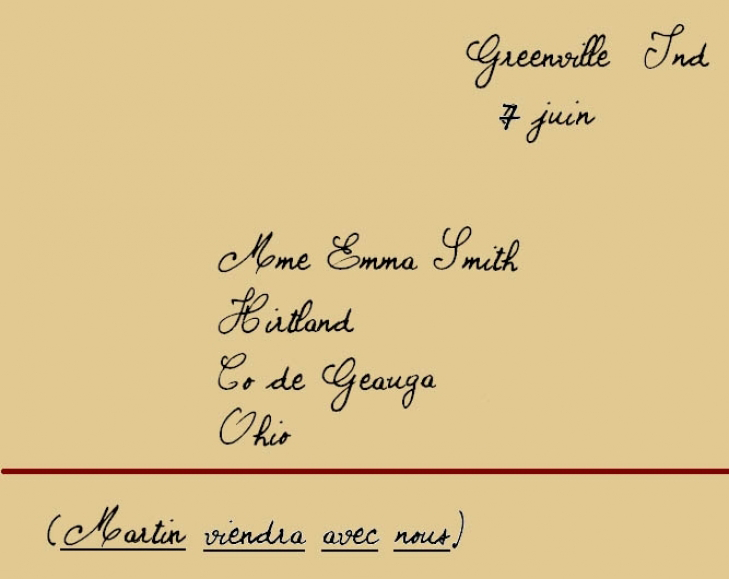 Greenville Ind
7 juin
Mme Emma Smith
Hirtland
Co de Geauga
Ohio
(Martin viendra avec nous)